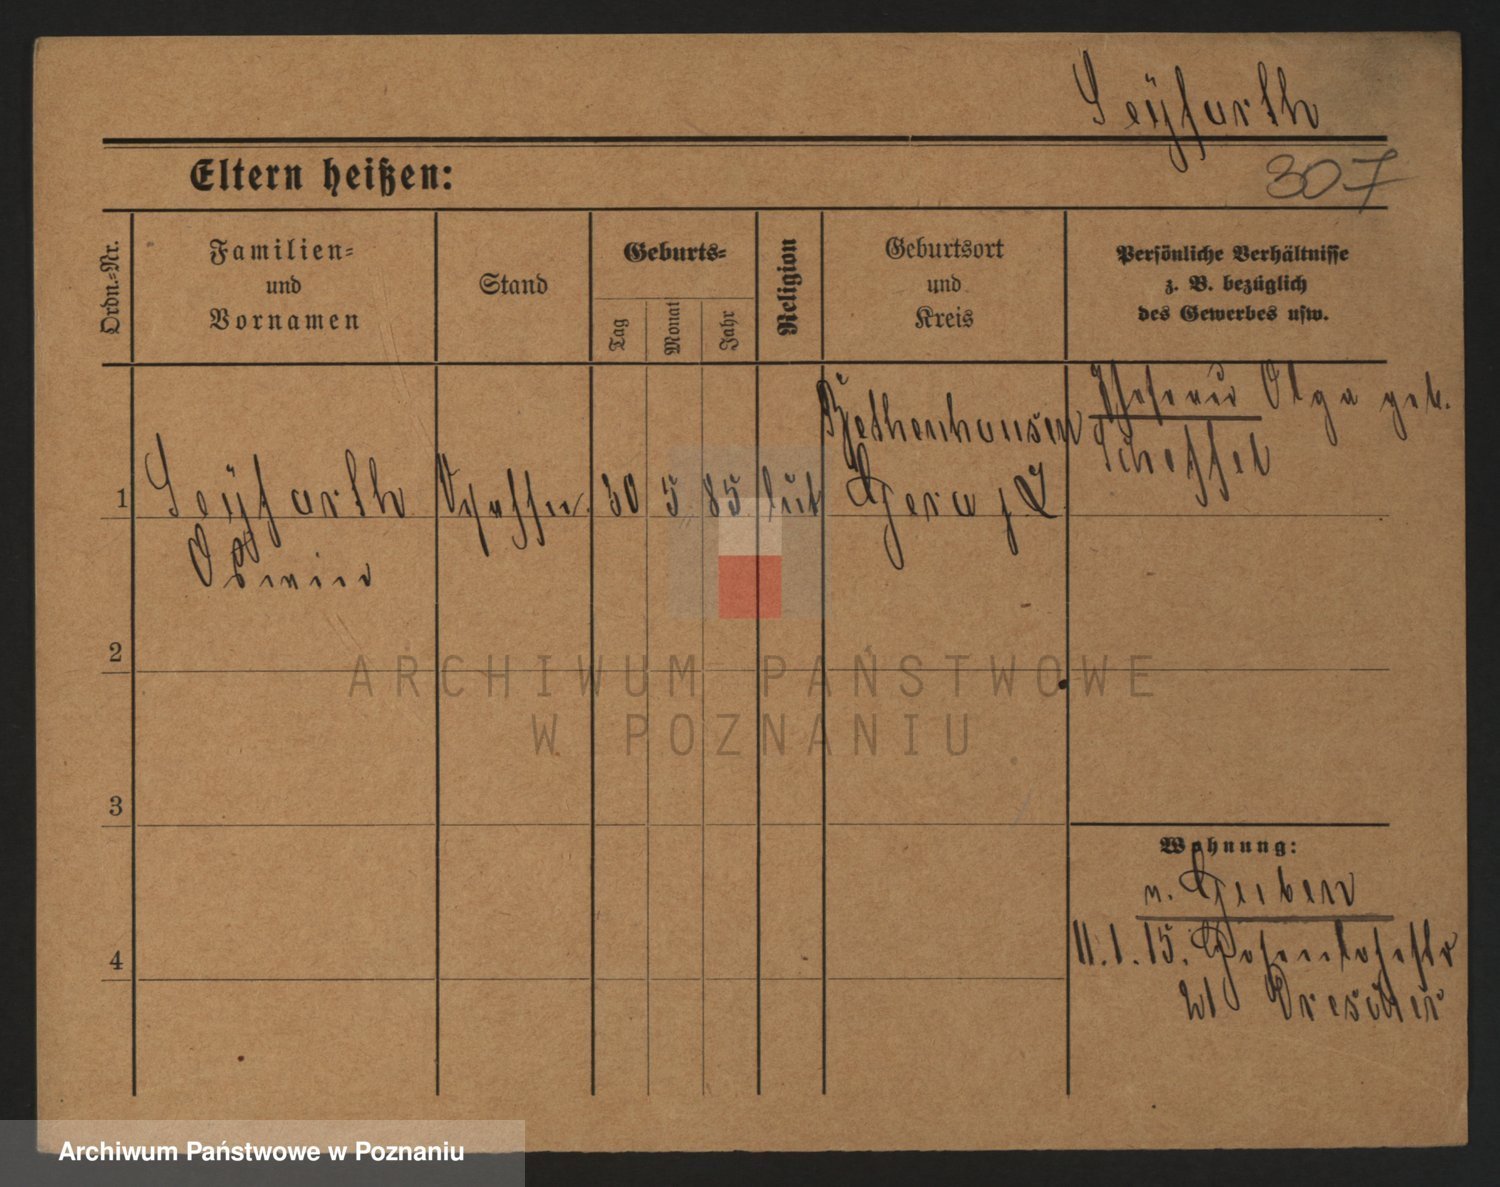 Seÿfarth
Eltern heißen:
307
Ordn.-Nr.
Familien-
und
Vornamen
Stand
Geburts-
Tag
Monat
Jahr
Religion
Geburtsort
und
Kreis
Persönliche Verhältnisse
z. B. bezüglich
des Gewerbes usw.
1
Seÿfarth
Oswin
30
5
85
lut
Bethenhausen
Gera
Ehefrau Olga geb.
Scheffel
2
3
4
Wohnung:
n. Guben
11. 1. 15. Hohenlohestr
21 Drescher
ARCHIWUM PAŃSTWOWE
W POZNANIU
Archiwum Państwowe w Poznaniu